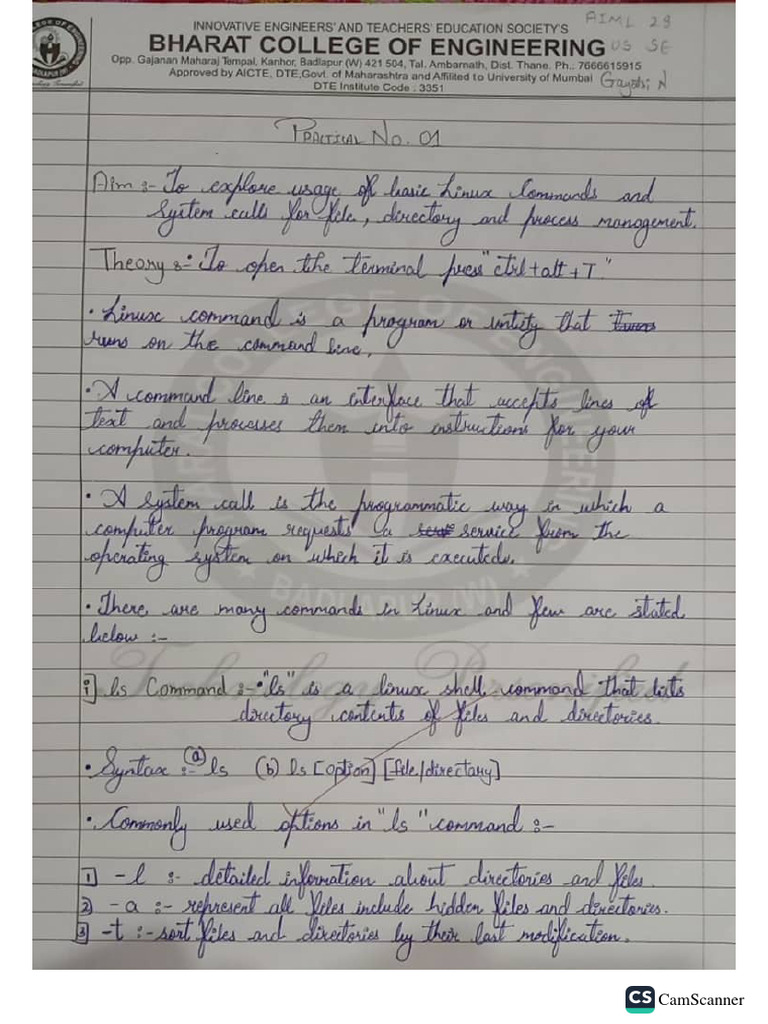 INNOVATIVE ENGINEERS' AND TEACHERS' EDUCATION SOCIETY'S
AIML 29
BHARAT COLLEGE OF ENGINEERING
US SE
Opp. Gajanan Maharaj Tempal, Kanhor, Badlapur (W) 421 504, Tal. Ambarnath, Dist. Thane. Ph.: 7666615915
Approved by AICTE, DTE,Govt. of Maharashtra and Affilited to University of Mumbai
DTE Institute Code : 3351
PRACTICAL NO. 01
Aim :- To explore usage of basic Linux Commands and
System calls for file, directory and process management.
Theory :- To open the terminal press "ctrl + alt + T"
• Linux command is a program or untity that
runs on the command line.
• A command line is an interface that accepts lines of
text and processes them into instructions for your
computer.
• A system call is the programmatic way in which a
computer program requests a service from the
operating system on which it is executed.
• There are many commands in Linux and few are stated
below :-
i] ls Command :- • "ls" is a linux shell command that lists
directory contents of files and directories.
• Syntax :- (a) ls (b) ls [option] [file/directary]
• Commonly used options in "ls" command :-
1] -l :- detailed information about directories and files.
2] -a :- represent all files include hidden files and directories.
3] -t :- sort files and directories by their last modification.
BHARAT COLLEGE OF ENGINEERING
BADLAPUR (W)
Technology Personified
CS CamScanner